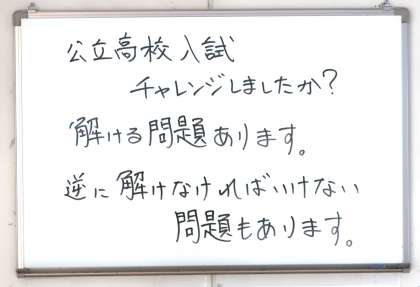 公立高校入試
チャレンジしましたか?
解ける問題あります。
逆に解けなければいけない
問題もあります。